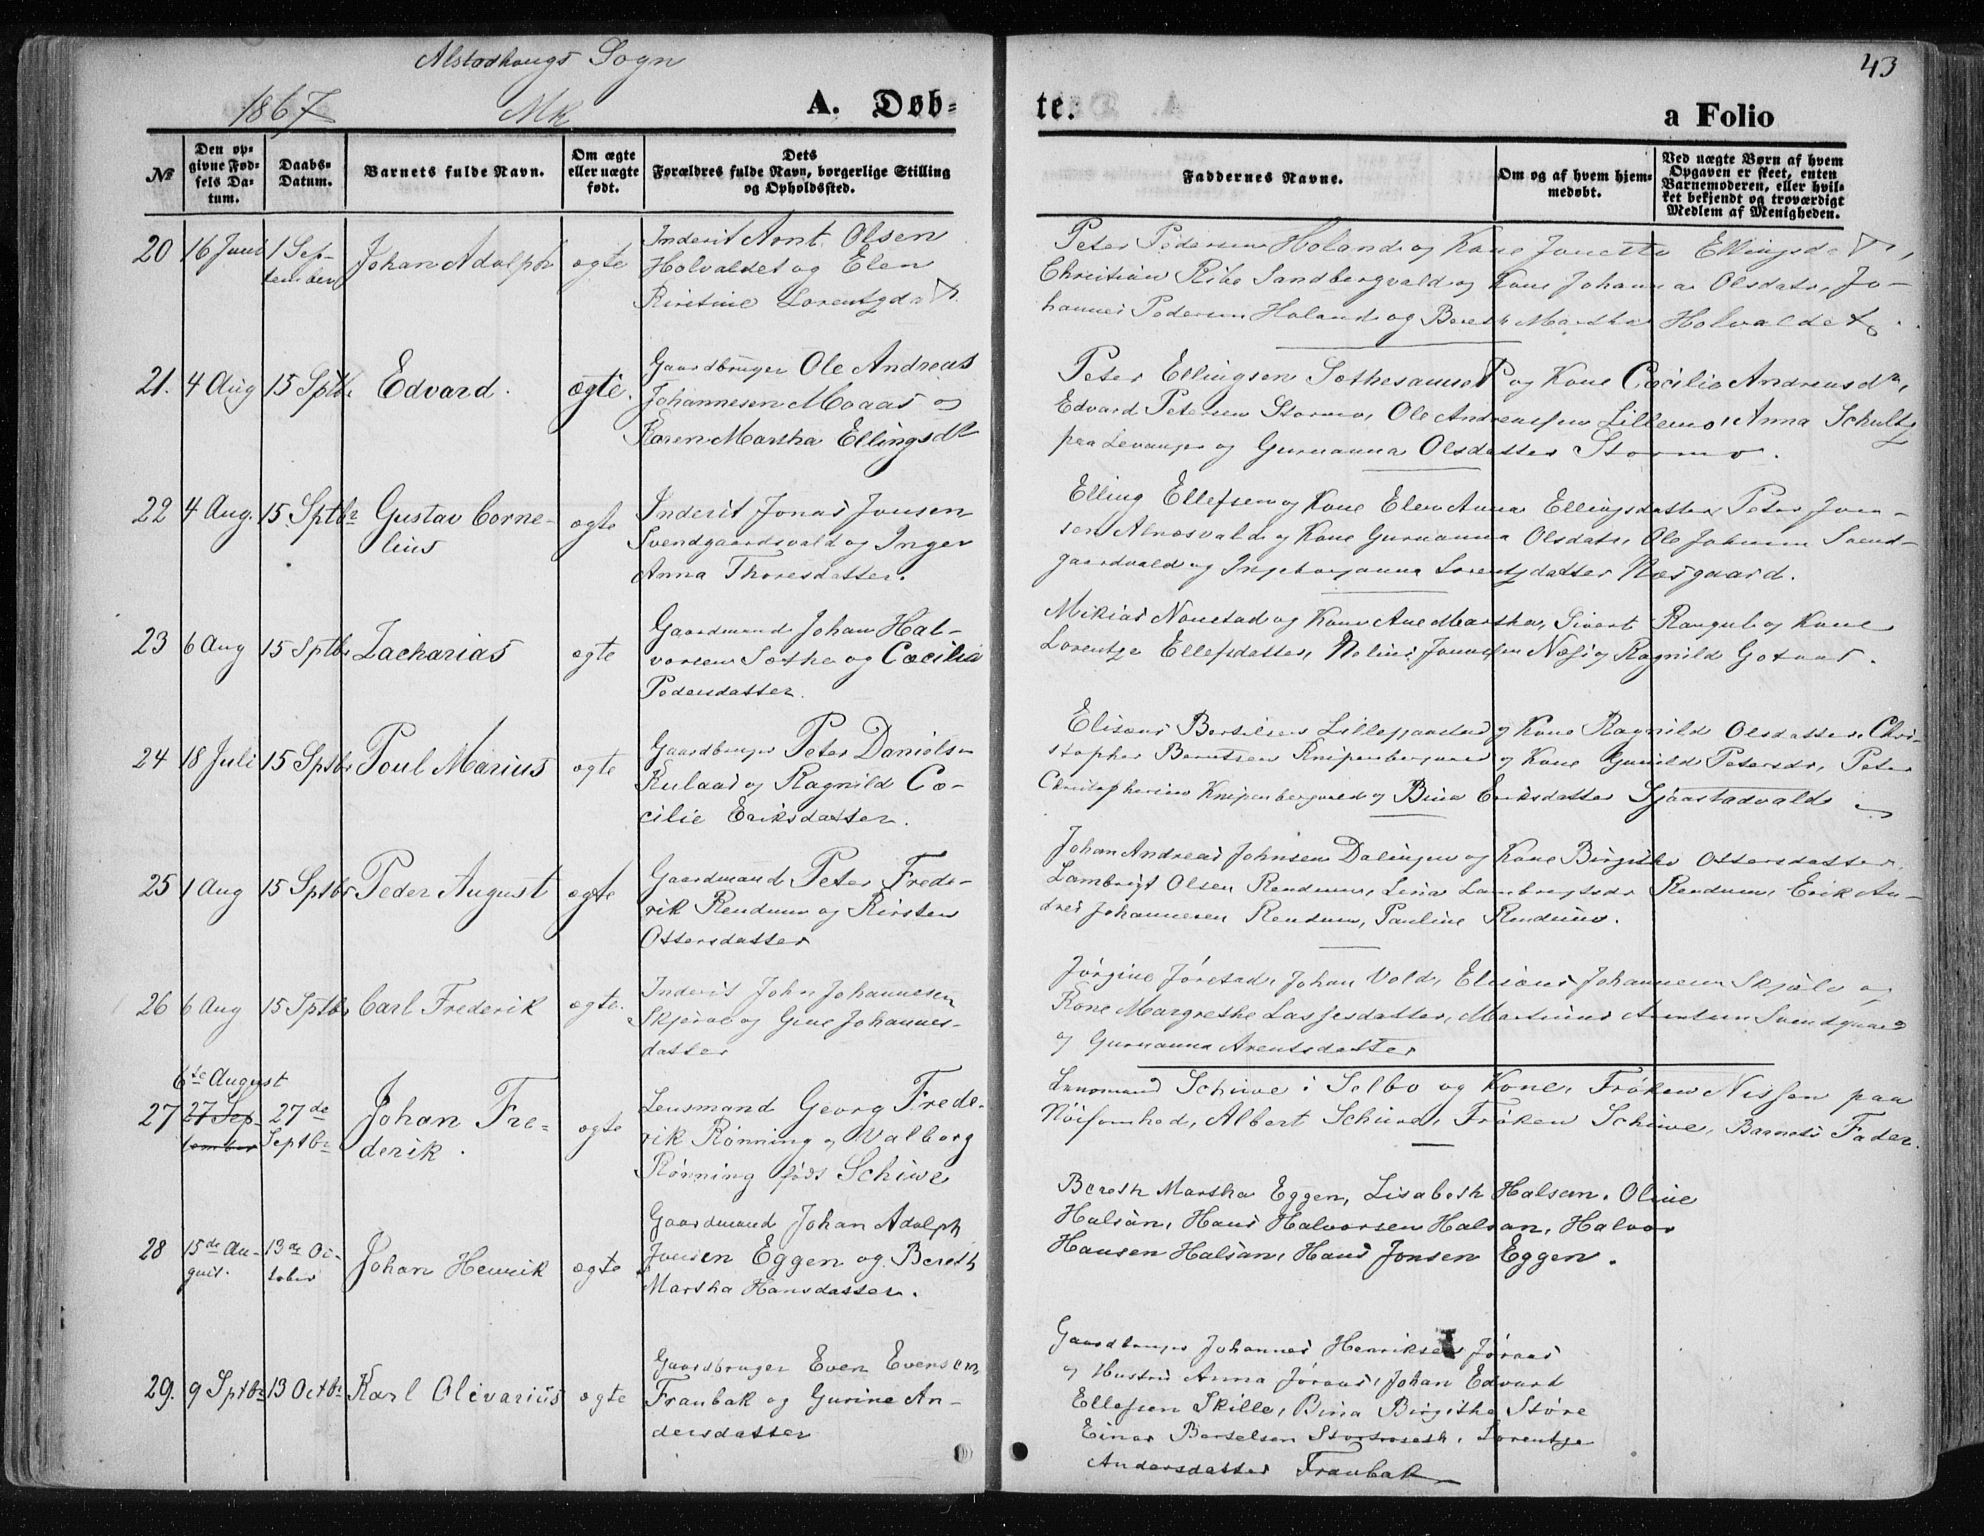 Alstadhougs Sogn
1867 Mk A. Døb- te. a Folio 43
No
Den op-
givne Fød-
sels Da-
tum.
Daabs-
Datum.
Barnets fulde Navn.
Om ægte
eller uægte
født.
Dets
Forældres fulde Navn, borgerlige Stilling
og Opholdssted.
Faddernes Navne.
Om og af hvem hjem-
medøbt.
Ved uægte Børn af hvem
Opgaven er skeet, enten
Barnemoderen, eller hvil-
ket bekjendt og troværdigt
Medlem af Menigheden.
20 16 Juni 1 Sep-
tember Johan Adolph ægte
Inderst Arnt Olsen
Holvaldet og Elen
Kirstine Lorentzdatr.
Peter Pedersen Holand og Kone Jonetta Ellingsdatr,
Christian Ribe Sandbergvald og Kone Johanna Olsdatr, Jo-
hannes Pedersen Holand og Bereth Martha Holvaldet.
21. 4 Aug 15 Sptbr Edvard. ægte.
Gaardbruger Ole Andreas
Johannesen Moaas og
Karen Martha Ellingsdr
Peter Ellingsen og Kone Cæcilia Andreasdr,
Edvard Petersen Stormo, Ole Andreassen Lillemo, Anna Schultz
paa Levanger og Guruanna Olsdatter Stormo.
22 4 Aug. 15 Sptbr Gustav Corne-
lius ægte
Inderst Jonas Jonsen
Svendgaardsvald og Inger
Anna Thoresdatter.
Elling Ellefsen og Kone Elen Anna Ellingsdatter, Peter Jon-
sen Alnæsvald og Kone Guruanna Olsdatr, Ole Johnsen Svend-
gaardvald og Ingeborganna Lorentzdatter Næsgaard.
23 6 Aug 15 Sptbr Zacharias ægte
Gaardmand Johan Hal-
vorsen Sothe og Cæcilia
Pedersdatter.
Mikias Nonstad og Kone Ane Martha, Sivert og Kone
Lorentze Ellefsdatter, Jonassen Næs og Ragnild
24 18 Juli 15 Sptbr Poul Marius ægte
Gaardbruger Peter Danielsen
og Ragnild Cæ-
cilie Eriksdatter.
Elisæus Bertelsen og Kone Ragnild Olsdatter, Chri-
stopher Berntsen og Kone Gunild Petersdr, Peter
Christophersen Knipenbergvald og Bina Eriksdatter
25 1 Aug 15 Sptbr Peder August ægte
Gaardmand Peter Frede-
rik Rendum og Kirsten
Ottersdatter
Johan Andreas Johnsen Dalingen og Kone Birgitha Ottersdatter,
Lambrigt Olsen Rendum, Lina Lambrigtsdr Rendum, Erik An-
dreas Johannesen Rendum, Pauline Rendum.
26 6 Aug 15 Sptbr Carl Frederik ægte.
Inderst John Johannesen
Skjerve og Gine Johannes-
datter
Jørgine Jørstad, Johan Vold, Elisæus Johannesen og
Kone Margrethe Lassesdatter, Martinus Arntsen Svendgaard
og Guruanna Arentsdatter
6te August
27 27 Sep-
tember 27de
Septbr Johan Fre-
derik. ægte
Lensmand Georg Frede-
rik Rønning og Valborg
Rønning født Schive
Lensmand Schive i Selbo og Kone, Frøken Nissen paa
Nøisomhed, Albert Schive, Frøken Schive, Barnets Fader.
28 15de Au-
gust. 13de Oc-
tober Johan Henrik ægte
Gaardmand Johan Adolph
Jonsen Eggen og Bereth
Martha Hansdatter.
Bereth Martha Eggen, Lisabeth Halsan, Oline
Halsan, Hans Halvorsen Halsan, Halvor
Hansen Halsan, Hans Jonsen Eggen.
29. 9 Sptbr 13 Octbr Karl Olivarius ægte
Gaardbruger Even Evensen
Fraubak og Gurine An-
dersdatter
Gaardbruger Johannes Henriksen Jøraas
og Hustru Anna Jøraas, Johan Edvart
Ellefsen Skille, Bina Birgitha Støre
Einar Bertelsen Lorentze
Andersdatter Fraubak